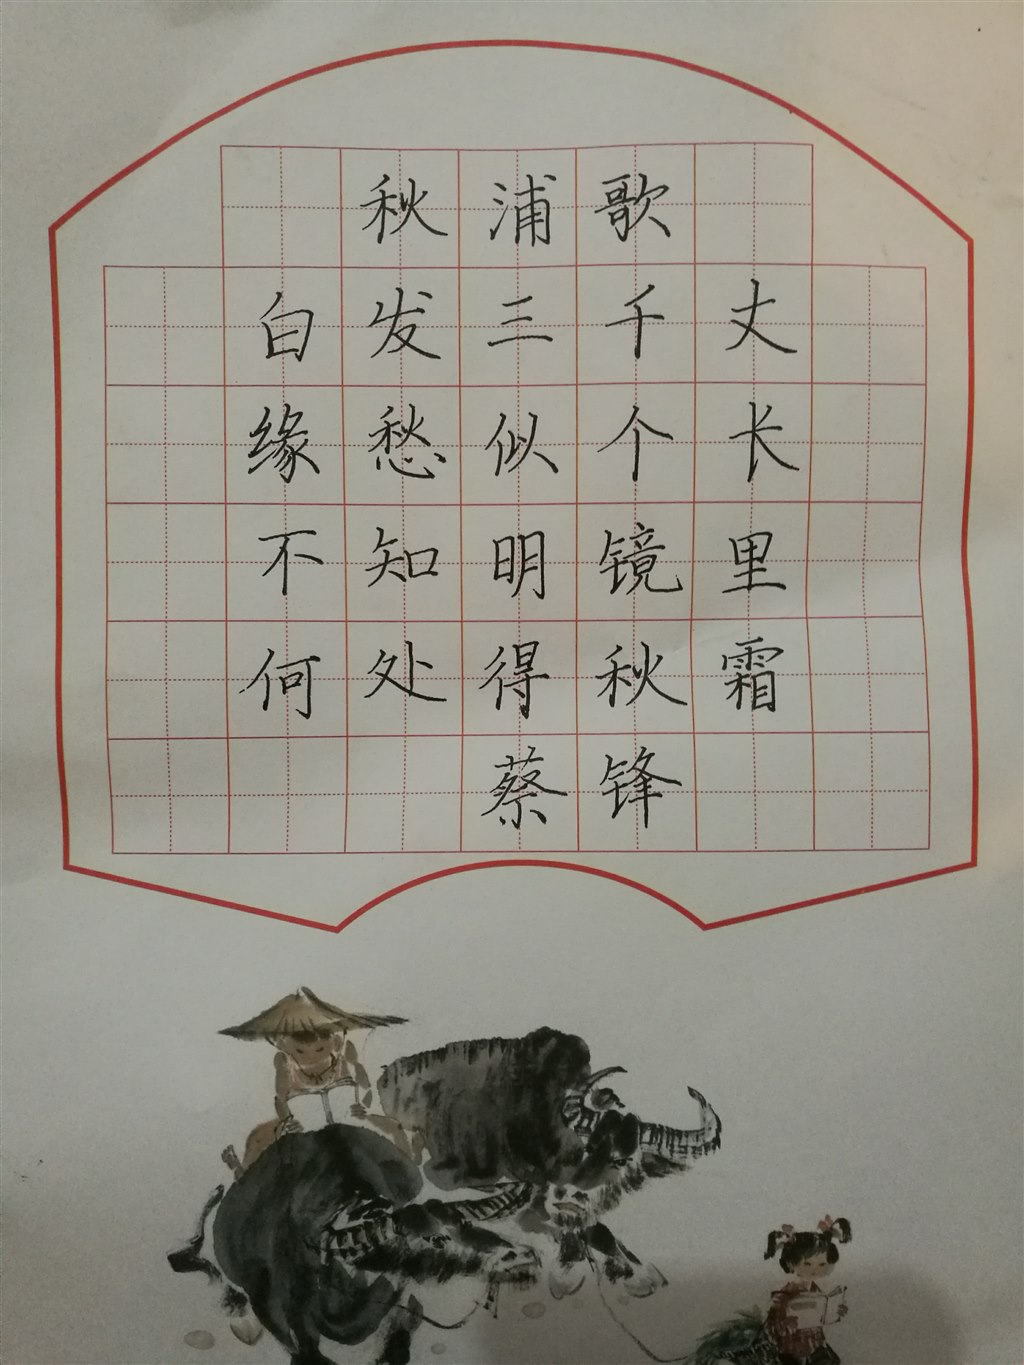 秋浦歌
白发三千丈
缘愁似个长
不知明镜里
何处得秋霜
蔡锋